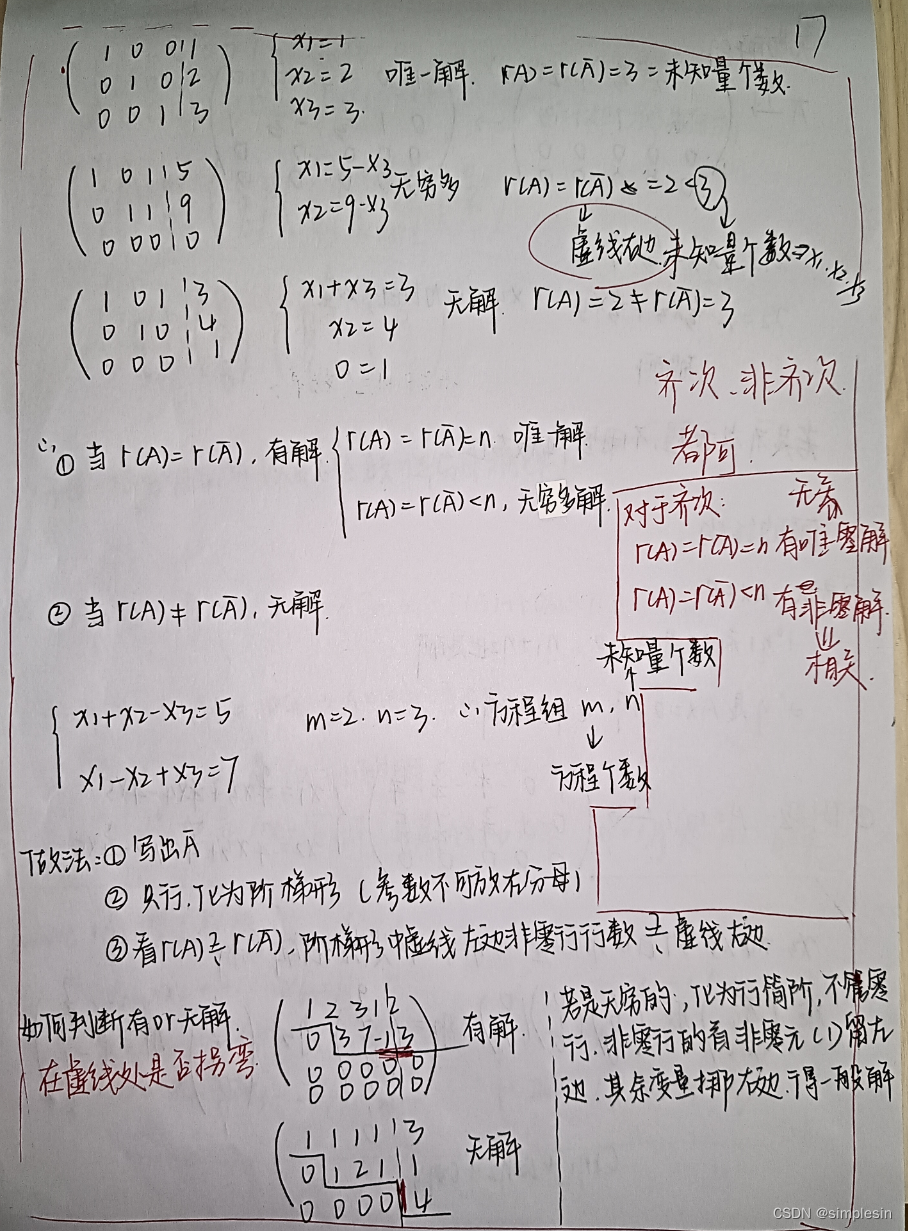 17
( 1 0 0 | 1
0 1 0 | 2
0 0 1 | 3 ) { x1=1
x2=2
x3=3. 唯一解. r(A)=r(Ā)=3=未知量个数.
( 1 0 1 | 5
0 1 1 | 9
0 0 0 | 0 ) { x1=5-x3
x2=9-x3 无穷多 r(A)=r(Ā)=2<3
虚线右边 未知量个数⇒x1.x2.x3
( 1 0 1 | 3
0 1 0 | 4
0 0 0 | 1 ) { x1+x3=3
x2=4
0=1 无解 r(A)=2≠r(Ā)=3
齐次、非齐次.
都可.
∴ ① 当 r(A)=r(Ā), 有解. { r(A)=r(Ā)=n 唯一解.
r(A)=r(Ā)<n, 无穷多解.
对于齐次: 无关
r(A)=r(Ā)=n 有唯零解
r(A)=r(Ā)<n 有非零解.
⇓
相关.
② 当 r(A)≠r(Ā), 无解.
未知量个数
↑
{ x1+x2-x3=5
x1-x2+x3=7 m=2. n=3. ∴方程组 m, n
↓
方程个数
做法:① 写出Ā
② 只行.化为阶梯形 (参数不可放在分母)
③ 看r(A)≟r(Ā).阶梯形中虚线左边非零行行数 ≟ 虚线右边.
如何判断有or无解.
在虚线处是否拐弯.
( 1 2 3 1 2
0 3 7 -1 3
0 0 0 0 0
0 0 0 0 0 ) 有解.
若是无穷的, 化为行简阶, 不管零
行.非零行的首非零元(1)留左
边.其余变量挪右边.得一般解
( 1 1 1 1 3
0 1 2 1 1
0 0 0 0 4 无解
CSDN @simplesin